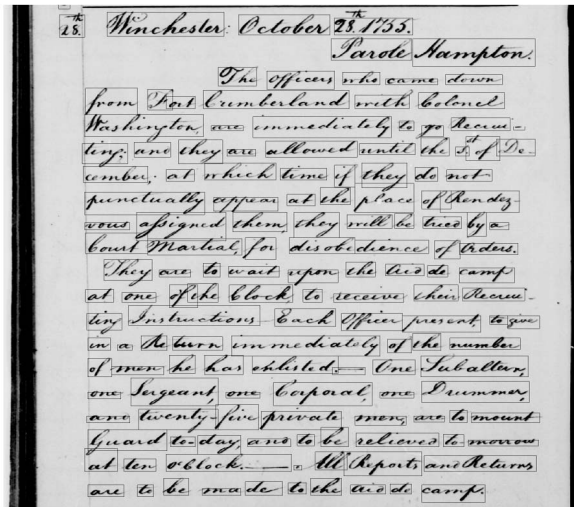 28. Winchester: October 28.th 1755.
Parole Hampton.
The Officers who came down
from Fort Cumberland with Colonel
Washington, are immediately to go Recrui-
ting; and they are allowed until the 1.st of De-
cember; at which time if they do not
punctually appear at the place of Rendez-
vous assigned them, they will be tried by a
Court Martial, for disobedience of Orders.
They are to wait upon the Aid de camp
at one of the Clock, to receive their Recrui-
ting Instructions—Each Officer present, to give
in a Return immediately of the number
of men he has enlisted.— One Subaltern,
one Sergeant, one Corporal, one Drummer,
and twenty-five private men, are to mount
Guard to-day, and to be relieved to morrow
at ten o'Clock.—. All Reports and Returns
are to be made to the Aid de camp.